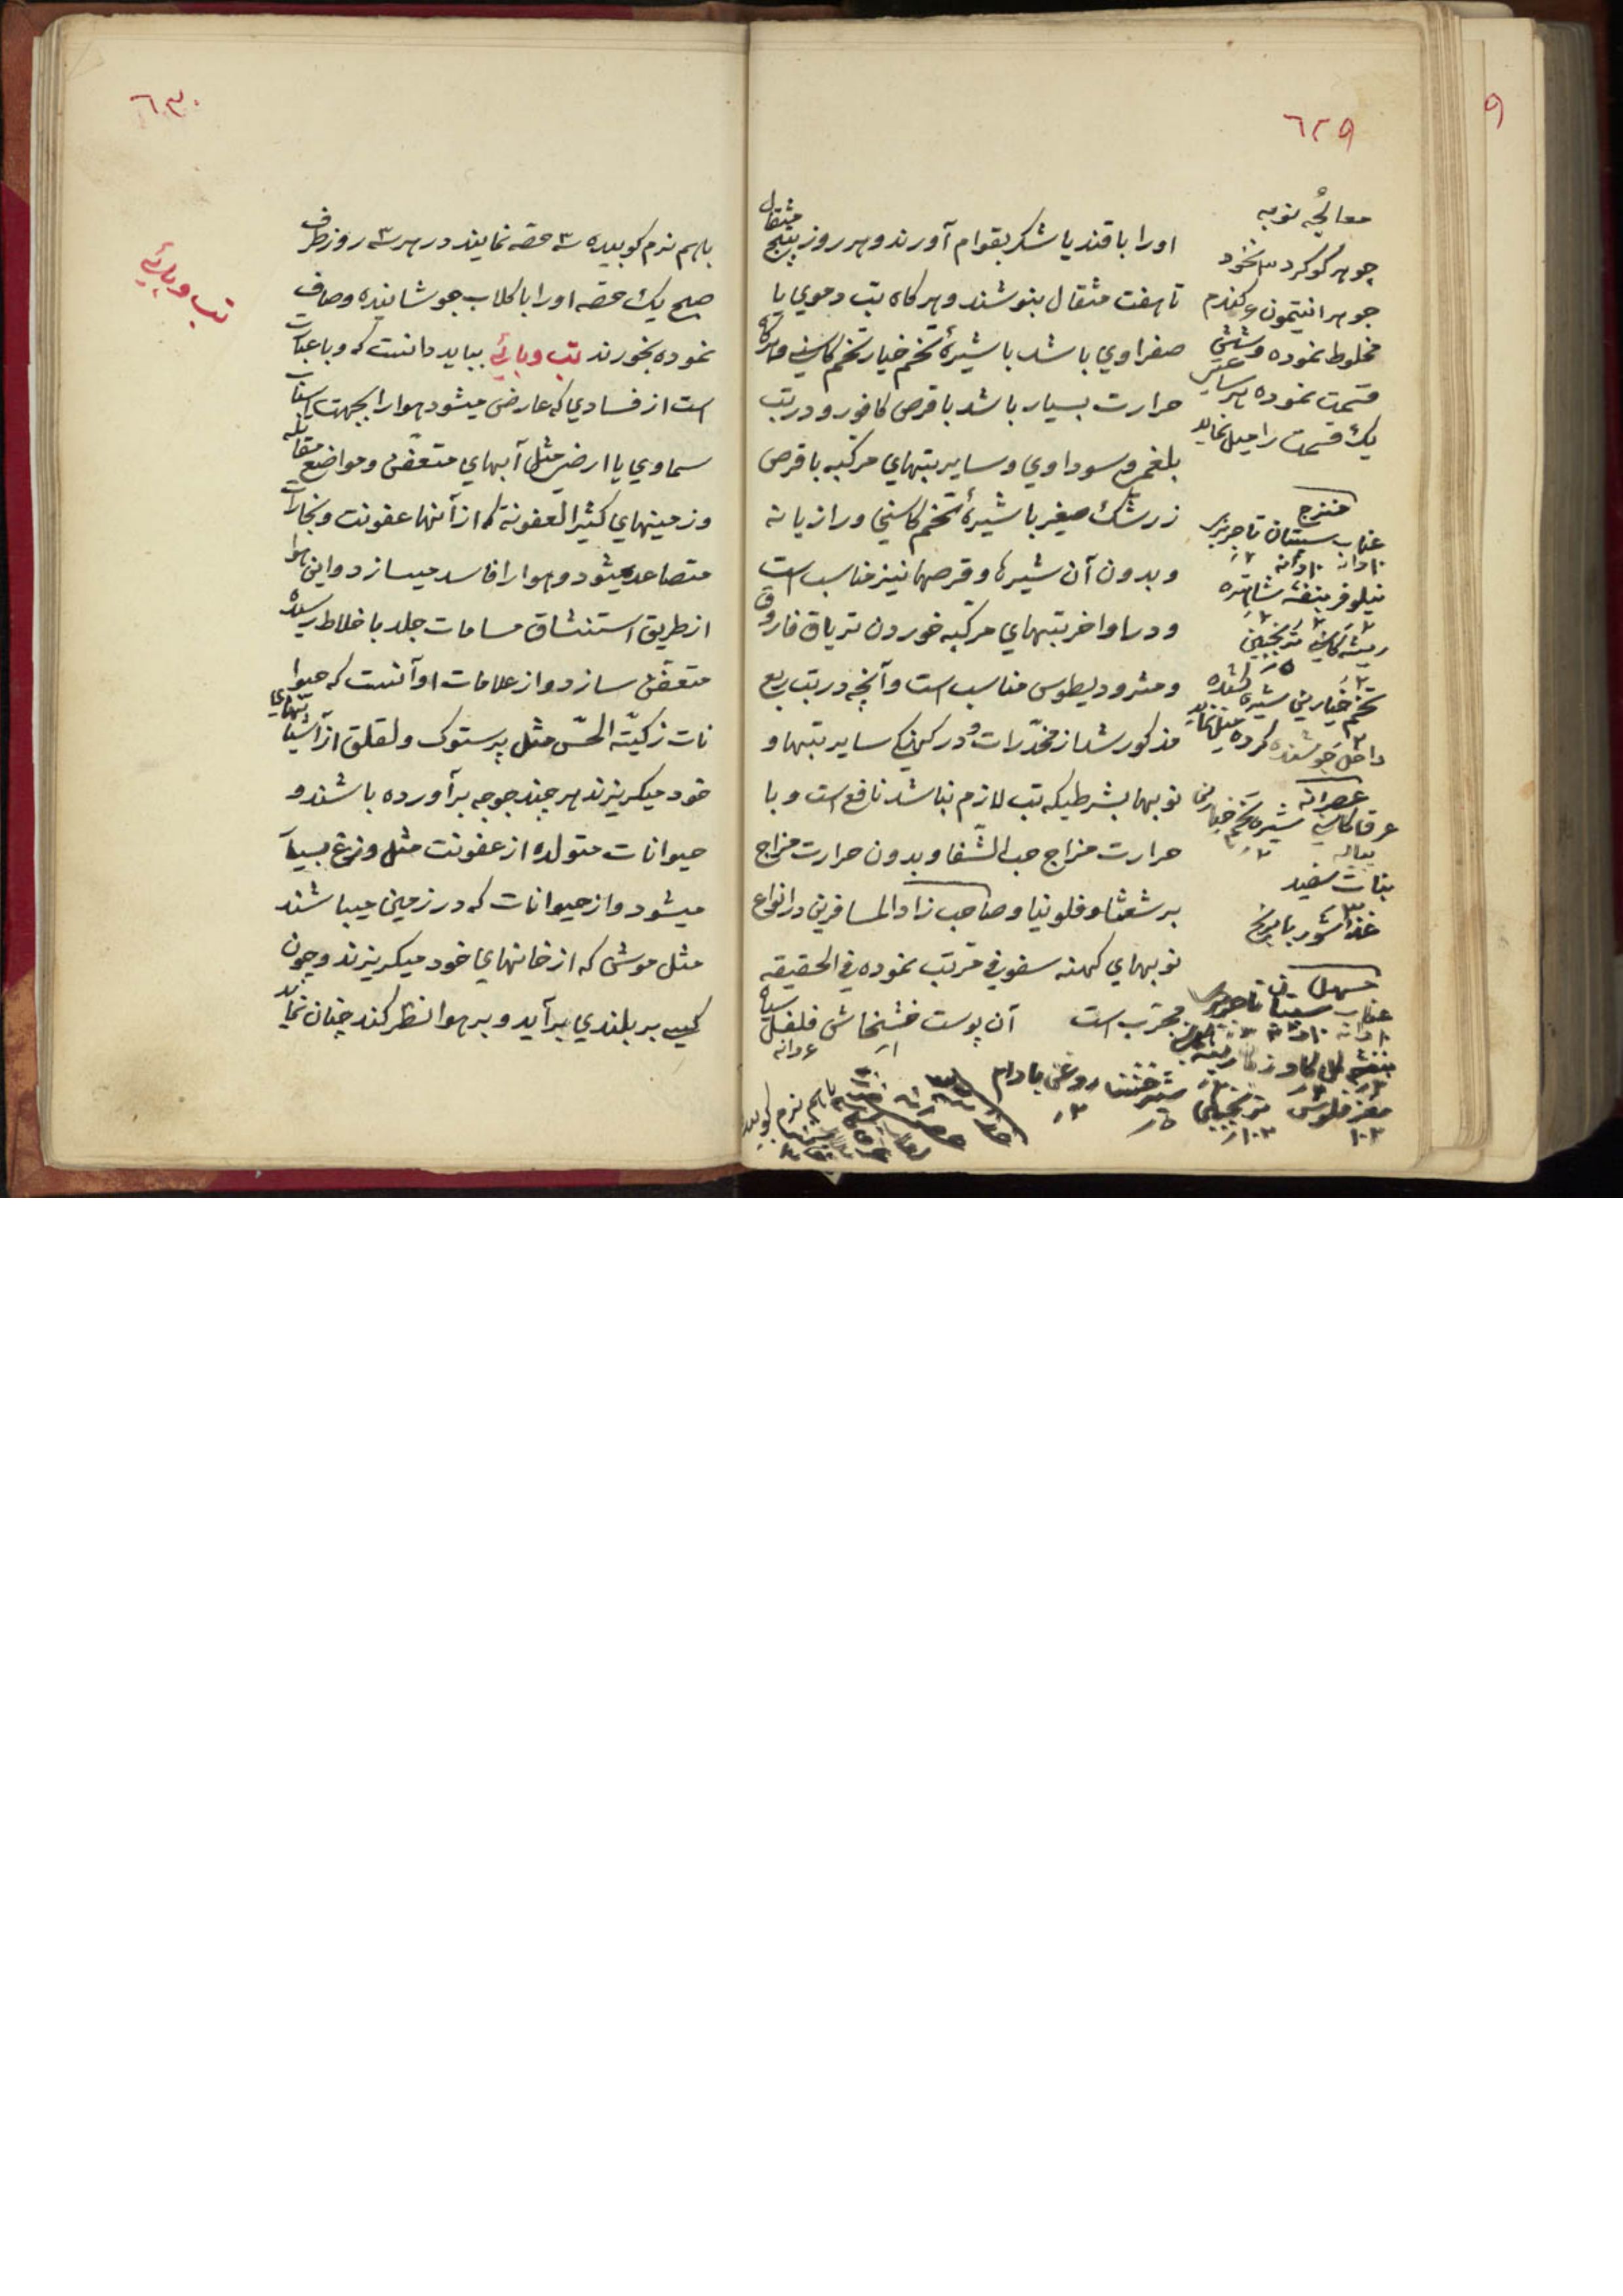 ٦٢٩
اورا با قند یا شکر بقوام آورند و هر روز پنج مثقال
تا هفت مثقال بنوشند و هر کاه تب دموي یا
صفراوي باشد با شیرۀ تخم خیار تخم کاسني و هرکاه
حرارت بسیار باشد با قرص کافور و در تب
بلغمي و سوداوي و سایر تبهاي مرکبه با قرص
زرشک صغیر با شیرۀ تخم کاسني و رازیانه
و بدون آن شیرها و قرصها نیز مناسب است
و در اواخر تبهاي مرکبه خوردن تریاق فاروق
و مثرودیطوس مناسب است و آنچه در تب ربع
مذکور شد از مخدّرات و در کهنکي سایر تبها و
نوبها بشرطیکه تب لازم نباشد نافع است و با
حرارت مزاج حب الشّفا و بدون حرارت مزاج
برشعثا و فلونیا و صاحب زاد المسافرین در انواع
نوبهاي کهنه سفوفي مرتب نموده في الحقیقه
مجرّب است آن پوست خشخاش فلفل سیاه
۱ ۶ دانه
باهم نرم کوبیده
معالجۀ نوبه
جوهر کوکرد ۳ نخود
جوهر انتیمون ۶ کندم
مخلوط نموده و شش
قسمت نموده هر ساعتي
یک قسمت را میل نماید
منضج
عناب سپستان تاجریزي
۱۰ دانه ۱۰ دانه ۲
نیلوفر بنفشه شاهتره
ریشه کاسني ترنجبین
تخم خیارین شیره کشیده
داخل جوشنده کرده میل نماید
عصرانه
عرق کاسني شیره تخم خیارین
پیاله
نبات سفید
۳
غذا شوربا برنج
مسهل
عناب سپستان تاجریزي
۱۰ دانه ۱۰ دانه
بنفشه کل کاوزبان
مغز فلوس ترنجبین شیرخشت روغن بادام
٦٣٠
تب وبائي
باهم نرم کوبیده ۳ حصّه نمایند در هر ۳ روز طرف
صبح یک حصّه اورا با کلاب جوشانیده و صاف
نموده بخورند تب وبائي بباید دانست که وبا عبارت
است از فسادي که عارض میشود هوا را بجهت اسباب
سماوي یا ارضي مثل آبهاي متعفّن و مواضع مقابله
و زمینهاي کثیر العفونة که از آنها عفونت و بخارات
متصاعد میشود و هوا را فاسد میسازد و این هوا
از طریق استنشاق مسامات جلد باخلاط رسیده
متعفّن سازد و از علامات او آنست که حیوا
نات زکیّه الحسّ مثل پرستوک و لقلق از آشیانهاي
خود میکریزند هر چند جوجه برآورده باشند و
حیوانات متولده از عفونت مثل وزغ بسیار
میشود و از حیوانات که در زمین میباشند
مثل موش که از خانهاي خود میکریزند و چون
کسي بر بلندي برآید و بر هوا نظر کند چنان نماید